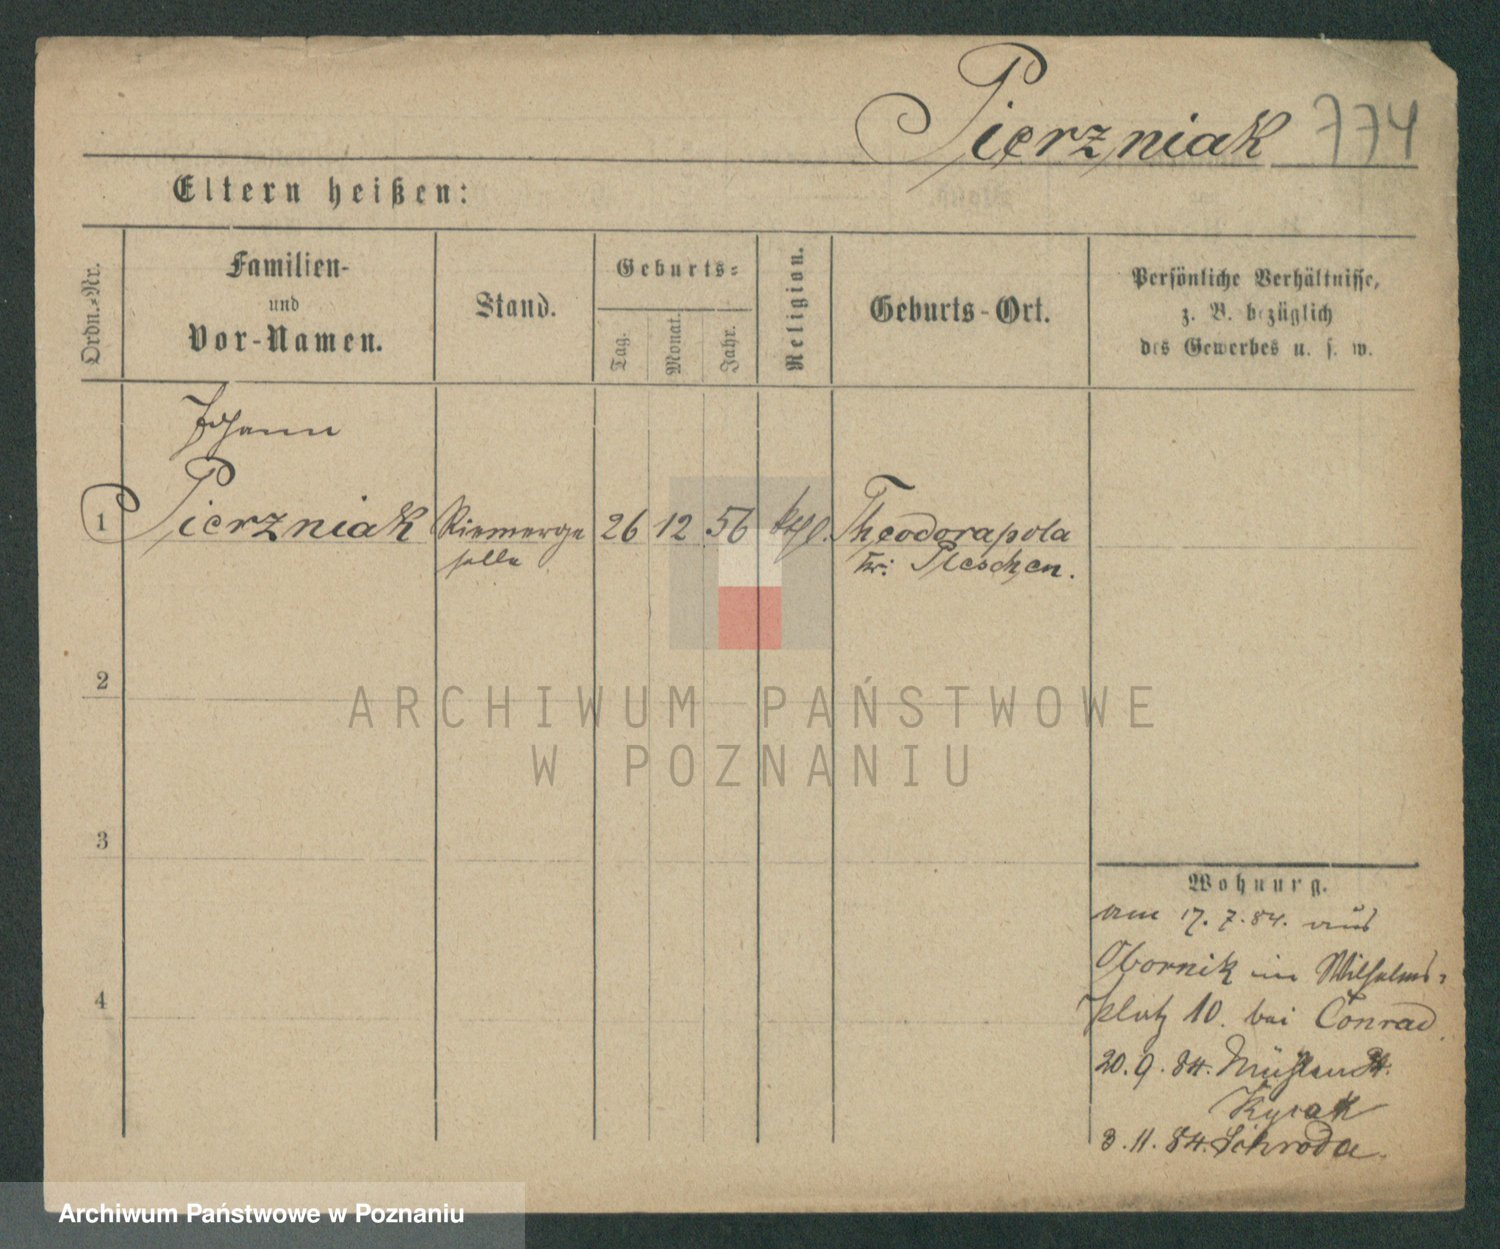 Pierzniak 774
Eltern heißen:
Ordn.-Nr.
Familien-
und
Vor-Namen.
Stand.
Geburts-
Tag.
Monat.
Jahr.
Religion.
Geburts-Ort.
Persönliche Verhältnisse,
z. B. bezüglich
des Gewerbes u. s. w.
Johann
1 Pierzniak Riemerge 26 12 56 Theodorapola
selle Kr: Pleschen.
2
ARCHIWUM PAŃSTWOWE
W POZNANIU
3
4
Wohnung.
am 17. 7. 84. aus
Obornik in Wilhelms-
platz 10. bei Conrad
20. 9. 84. Mühlenst.
3. 11. 84. Schroda.
Archiwum Państwowe w Poznaniu